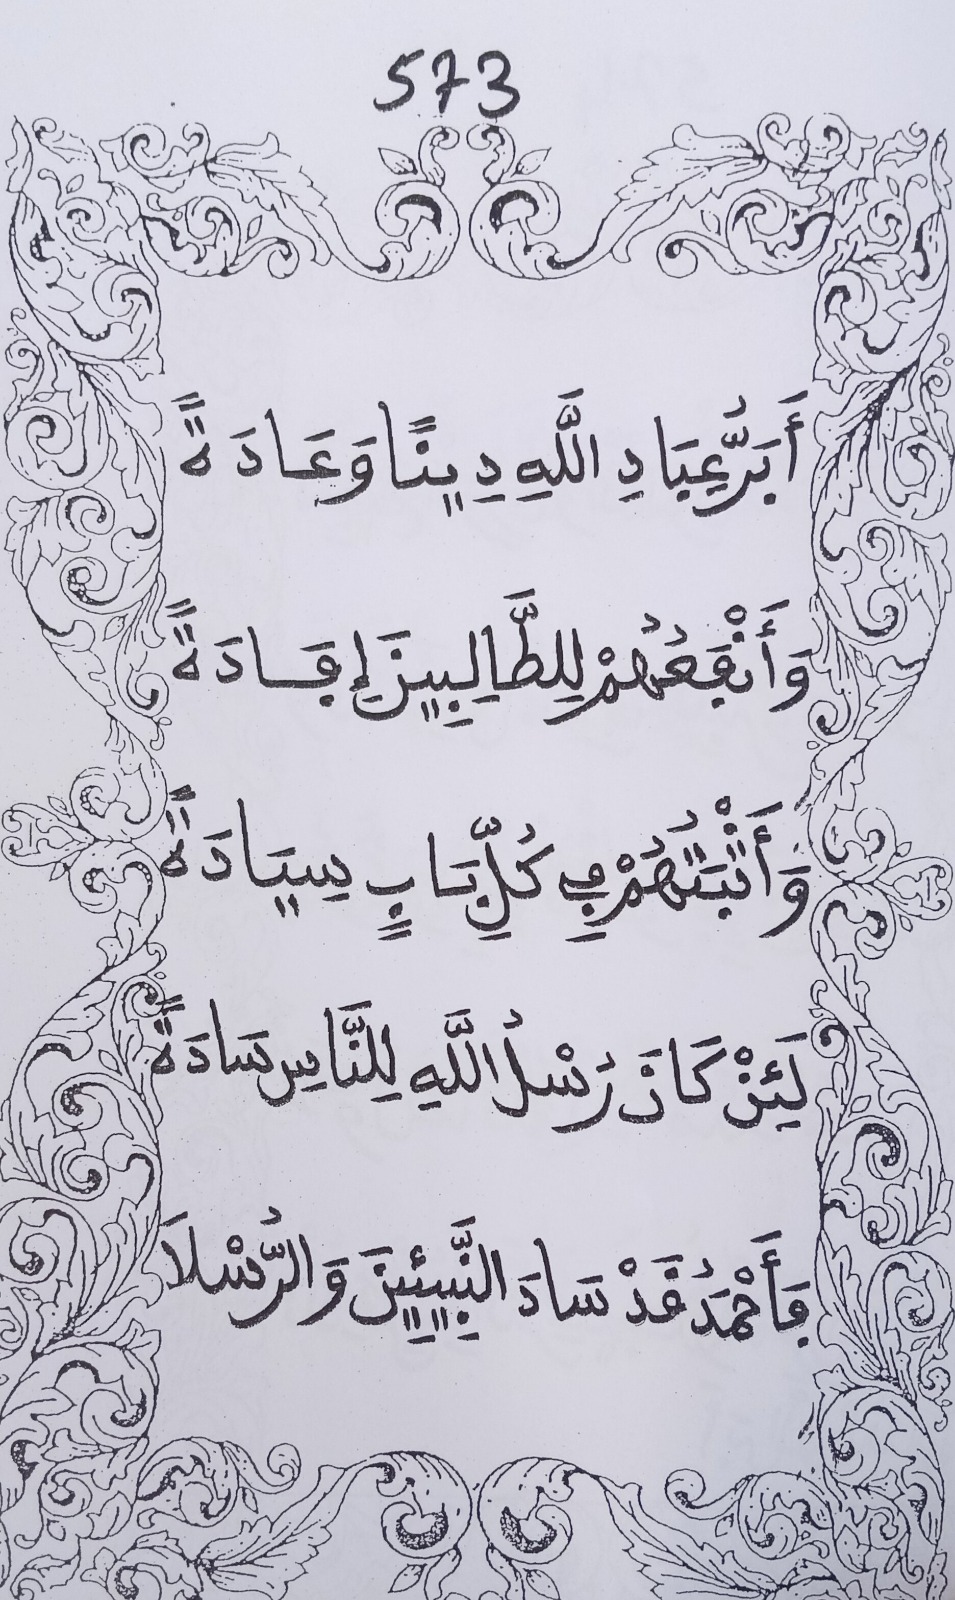 573
أَبَرُّ عِبَادِ اللَّهِ دِينًا وَعَادَةً
وَأَنْفَعُهُمْ لِلطَّالِبِينَ إِفَادَةً
وَأَثْبَتُهُمْ فِي كُلِّ بَابٍ سِيَادَةً
لَئِنْ كَانَ رُسْلُ اللَّهِ لِلنَّاسِ سَادَةً
فَأَحْمَدُ قَدْ سَادَ النَّبِيئِينَ وَالرُّسْلَا